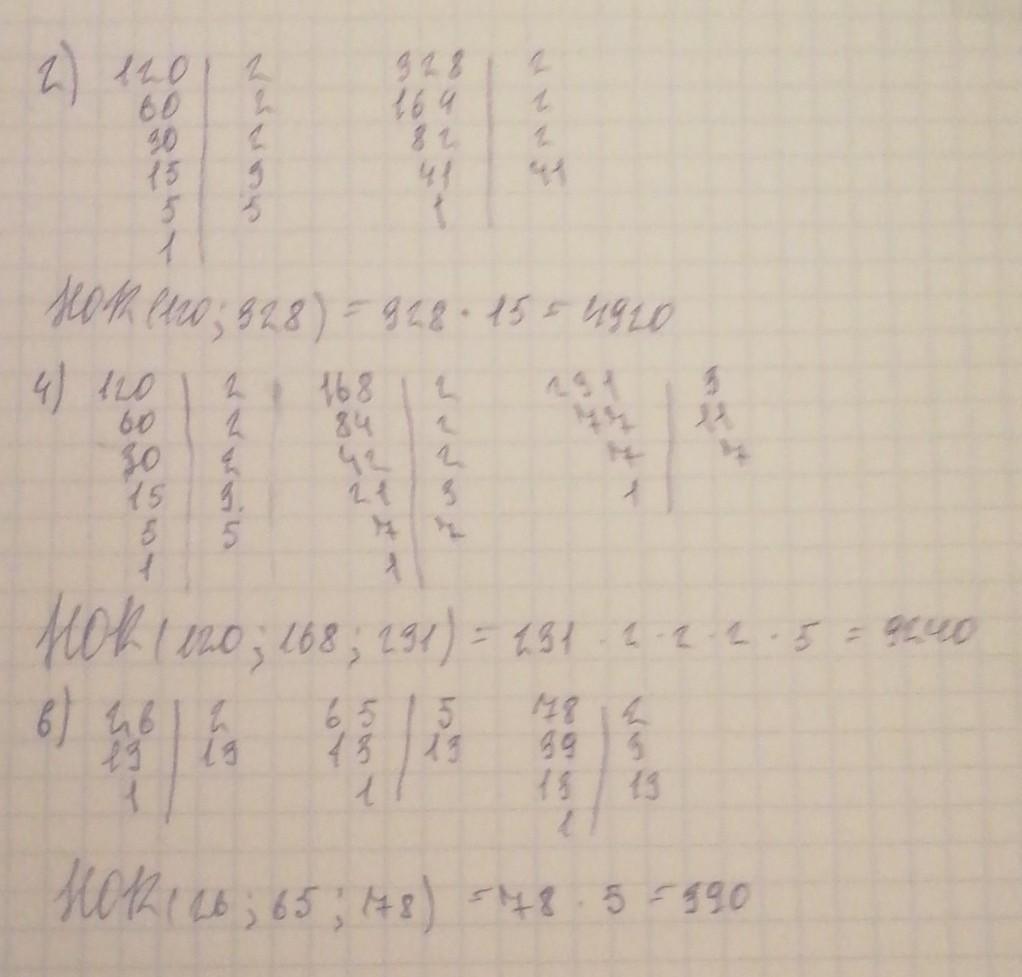 2) 120 | 2 328 | 2
60 | 2 164 | 2
30 | 2 82 | 2
15 | 3 41 | 41
5 | 5 1 |
1 |
НОК(120; 328) = 328 · 15 = 4920
4) 120 | 2 168 | 2 231 | 3
60 | 2 84 | 2 77 | 11
30 | 2 42 | 2 7 | 7
15 | 3 21 | 3 1 |
5 | 5 7 | 7
1 | 1 |
НОК(120; 168; 231) = 231 · 2 · 2 · 2 · 5 = 9240
6) 26 | 2 65 | 5 78 | 2
13 | 13 13 | 13 39 | 3
1 | 1 | 13 | 13
1 |
НОК(26; 65; 78) = 78 · 5 = 390